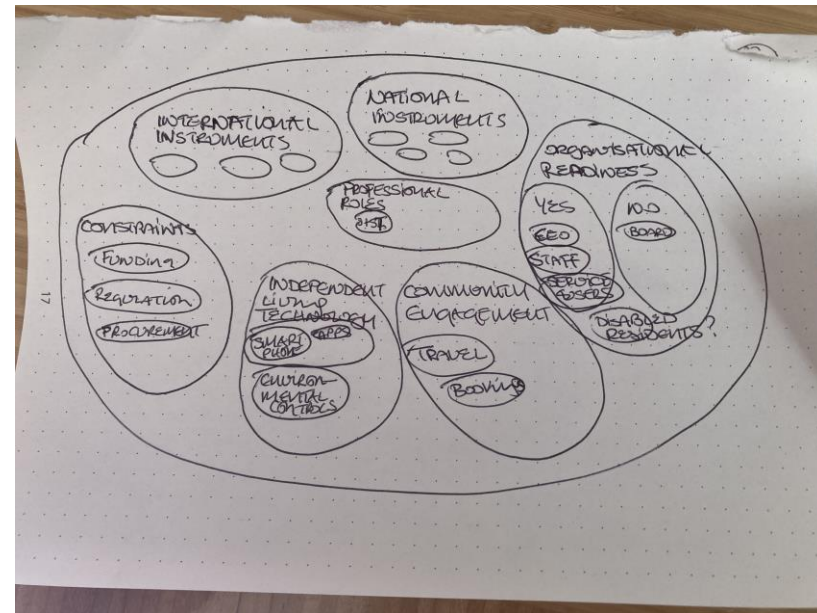 INTERNATIONAL
INSTRUMENTS
NATIONAL
INSTRUMENTS
ORGANISATIONAL
READINESS
YES
CEO
STAFF
SERVICE
USERS
NO
BOARD
DISABLED
RESIDENTS?
PROFESSIONAL
ROLES
CONSTRAINTS
FUNDING
REGULATION
PROCUREMENT
INDEPENDENT
LIVING
TECHNOLOGY
SMART
PHONE
APPS
ENVIRON
MENTAL
CONTROLS
COMMUNITY
ENGAGEMENT
TRAVEL
BOOKING
17